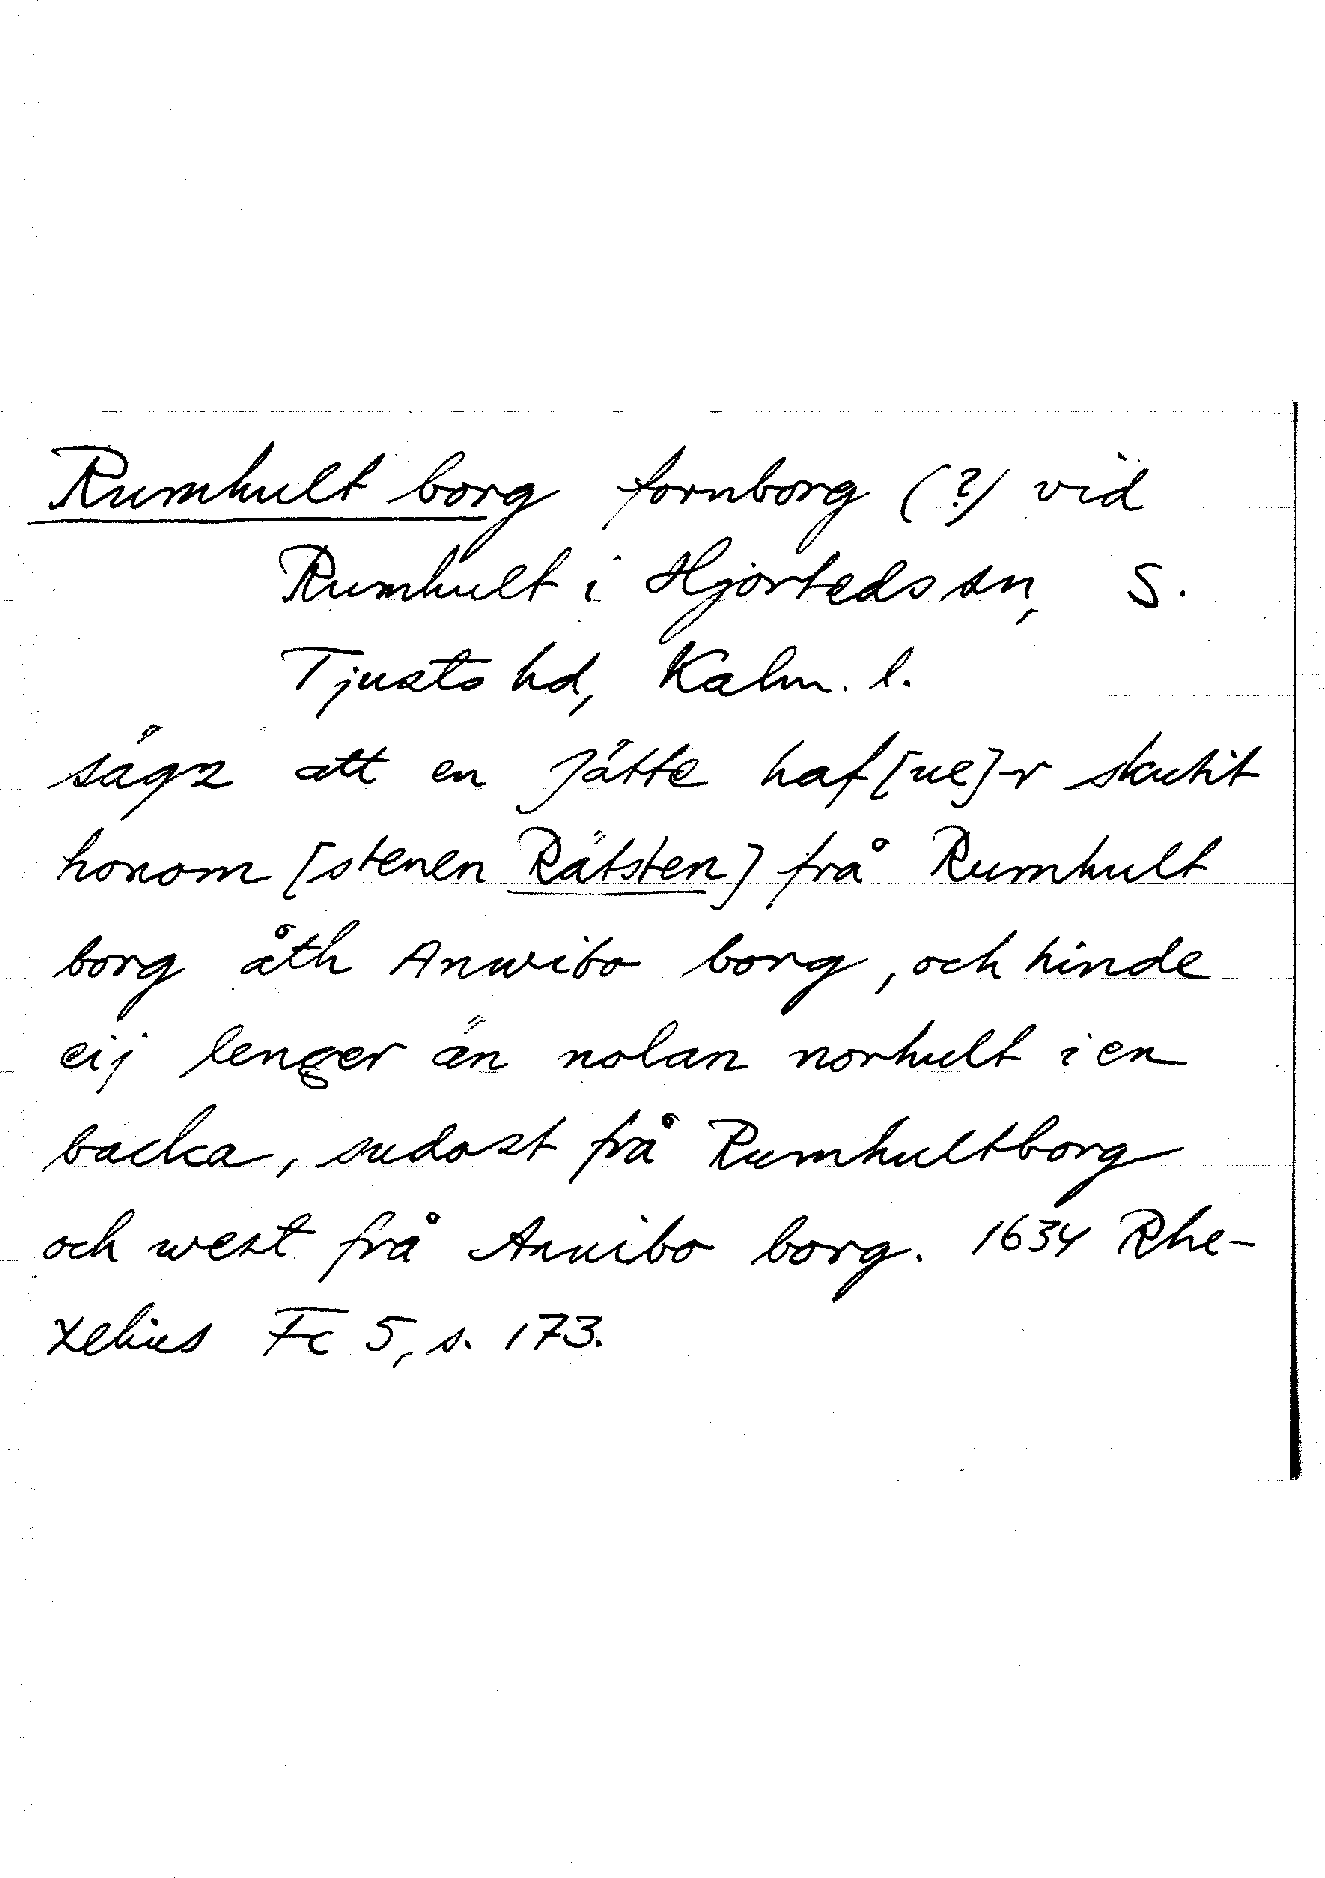 Rumhult borg fornborg (?) vid
Rumhult i Hjorteds sn, S.
Tjusts hd, Kalm. l.
sägz att en Jätte haf[ue]r skutit
honom [stenen Rätsten] frå Rumhult
borg åth Anwibo borg, och hinde
eij lenger än nolan norhult i en
backa, sudost frå Rumhultborg
och west frå Anuibo borg. 1634 Rhe-
zelius Fc 5, s. 173.